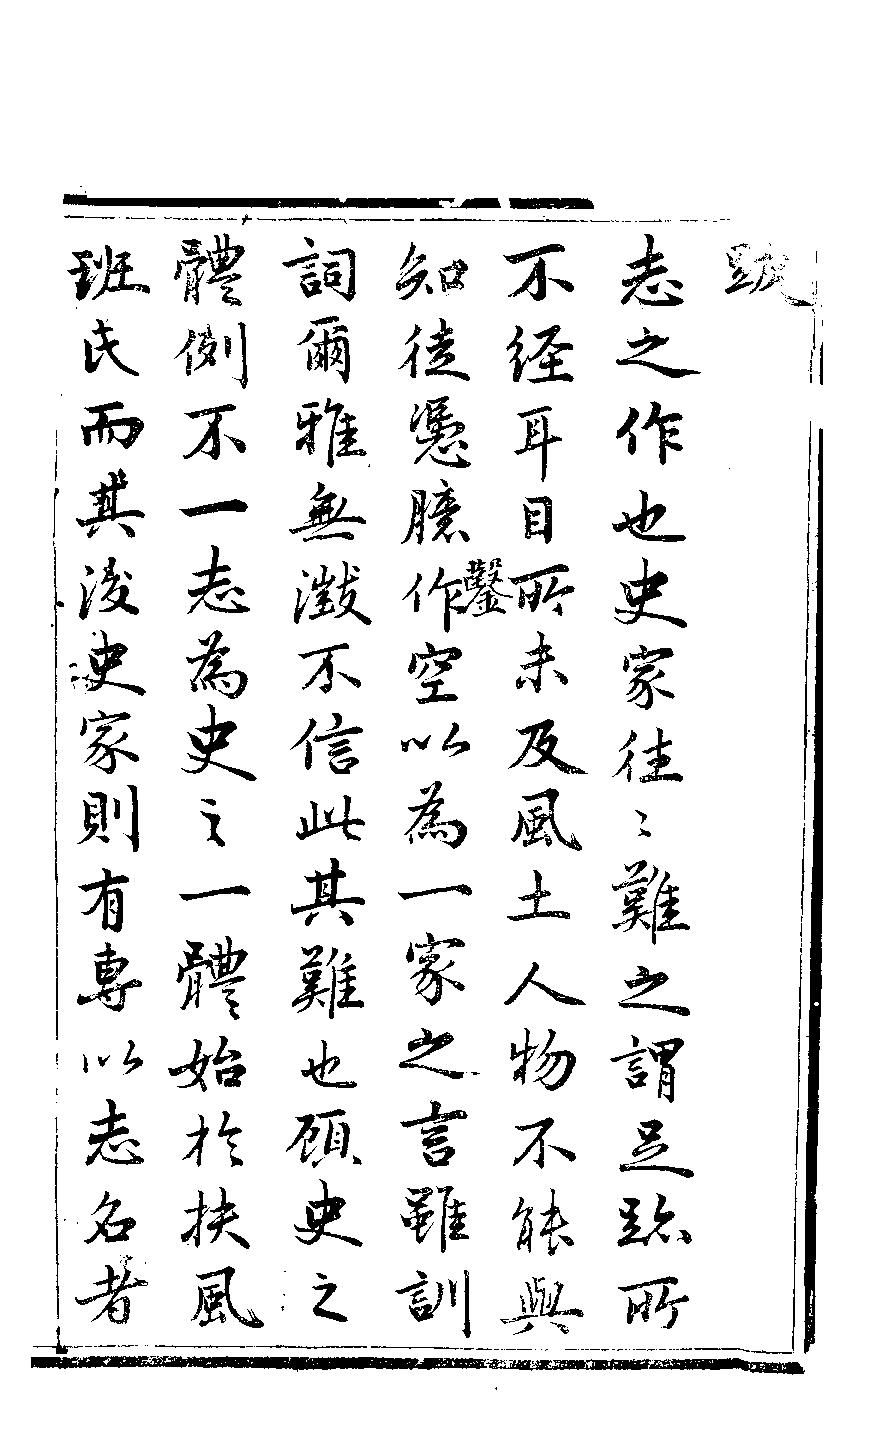 跋
志之作也史家往々難之謂足跡所
不経耳目所未及風土人物不能與
知徒憑臆作鑿空以為一家之言雖訓
詞爾雅無徵不信此其難也顧史之
體例不一志為史之一體始於扶風
班氏而其後史家則有専以志名者